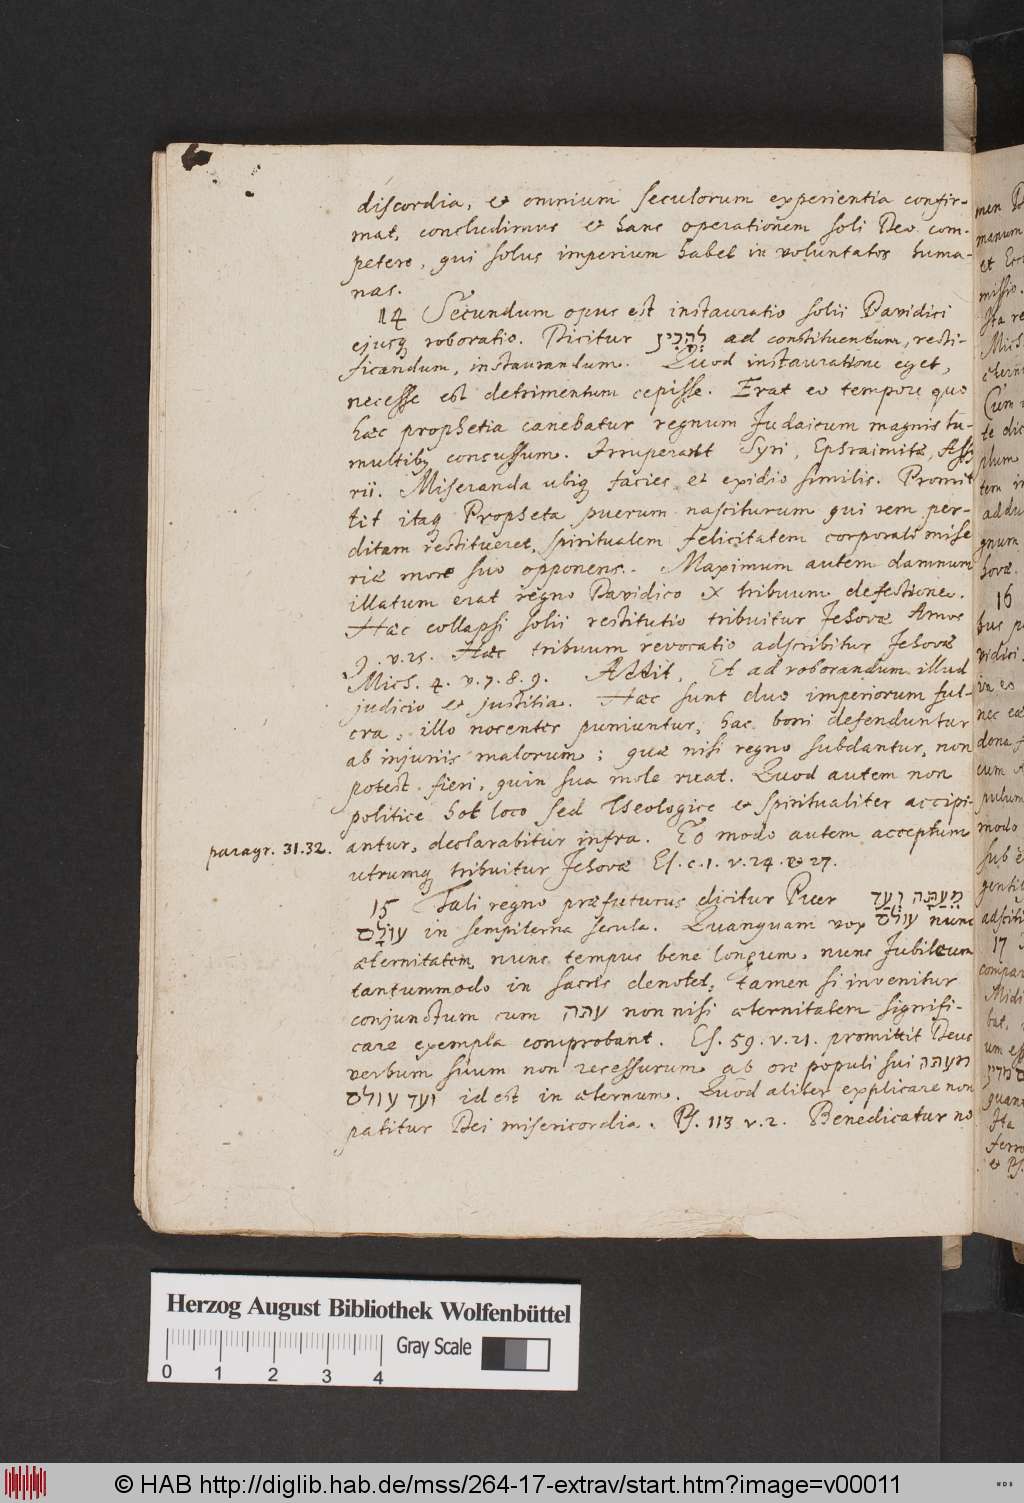 discordia, et omnium seculorum experientia confir-
mat, concludimus et hanc operationem soli Deo com-
petere, qui solus imperium habet in voluntates huma-
nas.
14 Secundum opus est instauratio solii Davidici
ejusq roboratio. Dicitur לְהָכִין ad constituendum, resti-
ficandum, instaurandum. Quod instauratione eget,
necesse est detrimentum cepisse. Erat eo tempore quo
haec prophetia canebatur regnum Judaicum magnis tu-
multibq concussum. Irruperant Syri, Ephraimitæ, Assy
rii. Miseranda ubiq facies et exidio similis. Promit
tit itaq Propheta puerum nasciturum qui rem per-
ditam restitueret, spiritualem felicitatem corporali mise
riæ more suo opponens. Maximum autem damnum
illatum erat regno Davidico ex tribuum defectione.
Hæc collapsi solii restitutio tribuitur Jehovæ Amos
9. v. 25. Hæc tribuum revocatio adscribitur Jehovæ
Mich. 4. v. 7. 8. 9. Addit, Et ad roborandum illud
judicio et justitia. Hæc sunt duo imperiorum ful-
cra, illo nocentes puniuntur, hac boni defenduntur
ab injuriis malorum; quæ nisi regno subdantur, non
potest fieri, quin sua mole ruat. Quod autem non
politice hoc loco sed Theologice et spiritualiter accipi-
antur, declarabitur infra. Eo modo autem acceptum
utrumq tribuitur Jehovæ Es. c. 1. v. 24. & 27.
paragr. 31.32.
15 Tali regno præfuturus dicitur Puer מֵעַתָּה וְעַד
עוֹלָם in sempiterna secula. Quanquam vox עוֹלָם nunc
æternitatem, nunc tempus bene longum, nunc Jubileum
tantummodo in sacris denotet, tamen si invenitur
conjunctum cum עתה non nisi æternitatem signifi-
care exempla comprobant. Es. 59. v. 21. promittit Deus
verbum suum non recessurum ab ore populi sui מעתה
ועד עולם id est in æternum. Quod aliter explicare non
patitur Dei misericordia. Ps. 113 v. 2. Benedicatur no
Herzog August Bibliothek Wolfenbüttel
Gray Scale
0 1 2 3 4
© HAB http://diglib.hab.de/mss/264-17-extrav/start.htm?image=v00011